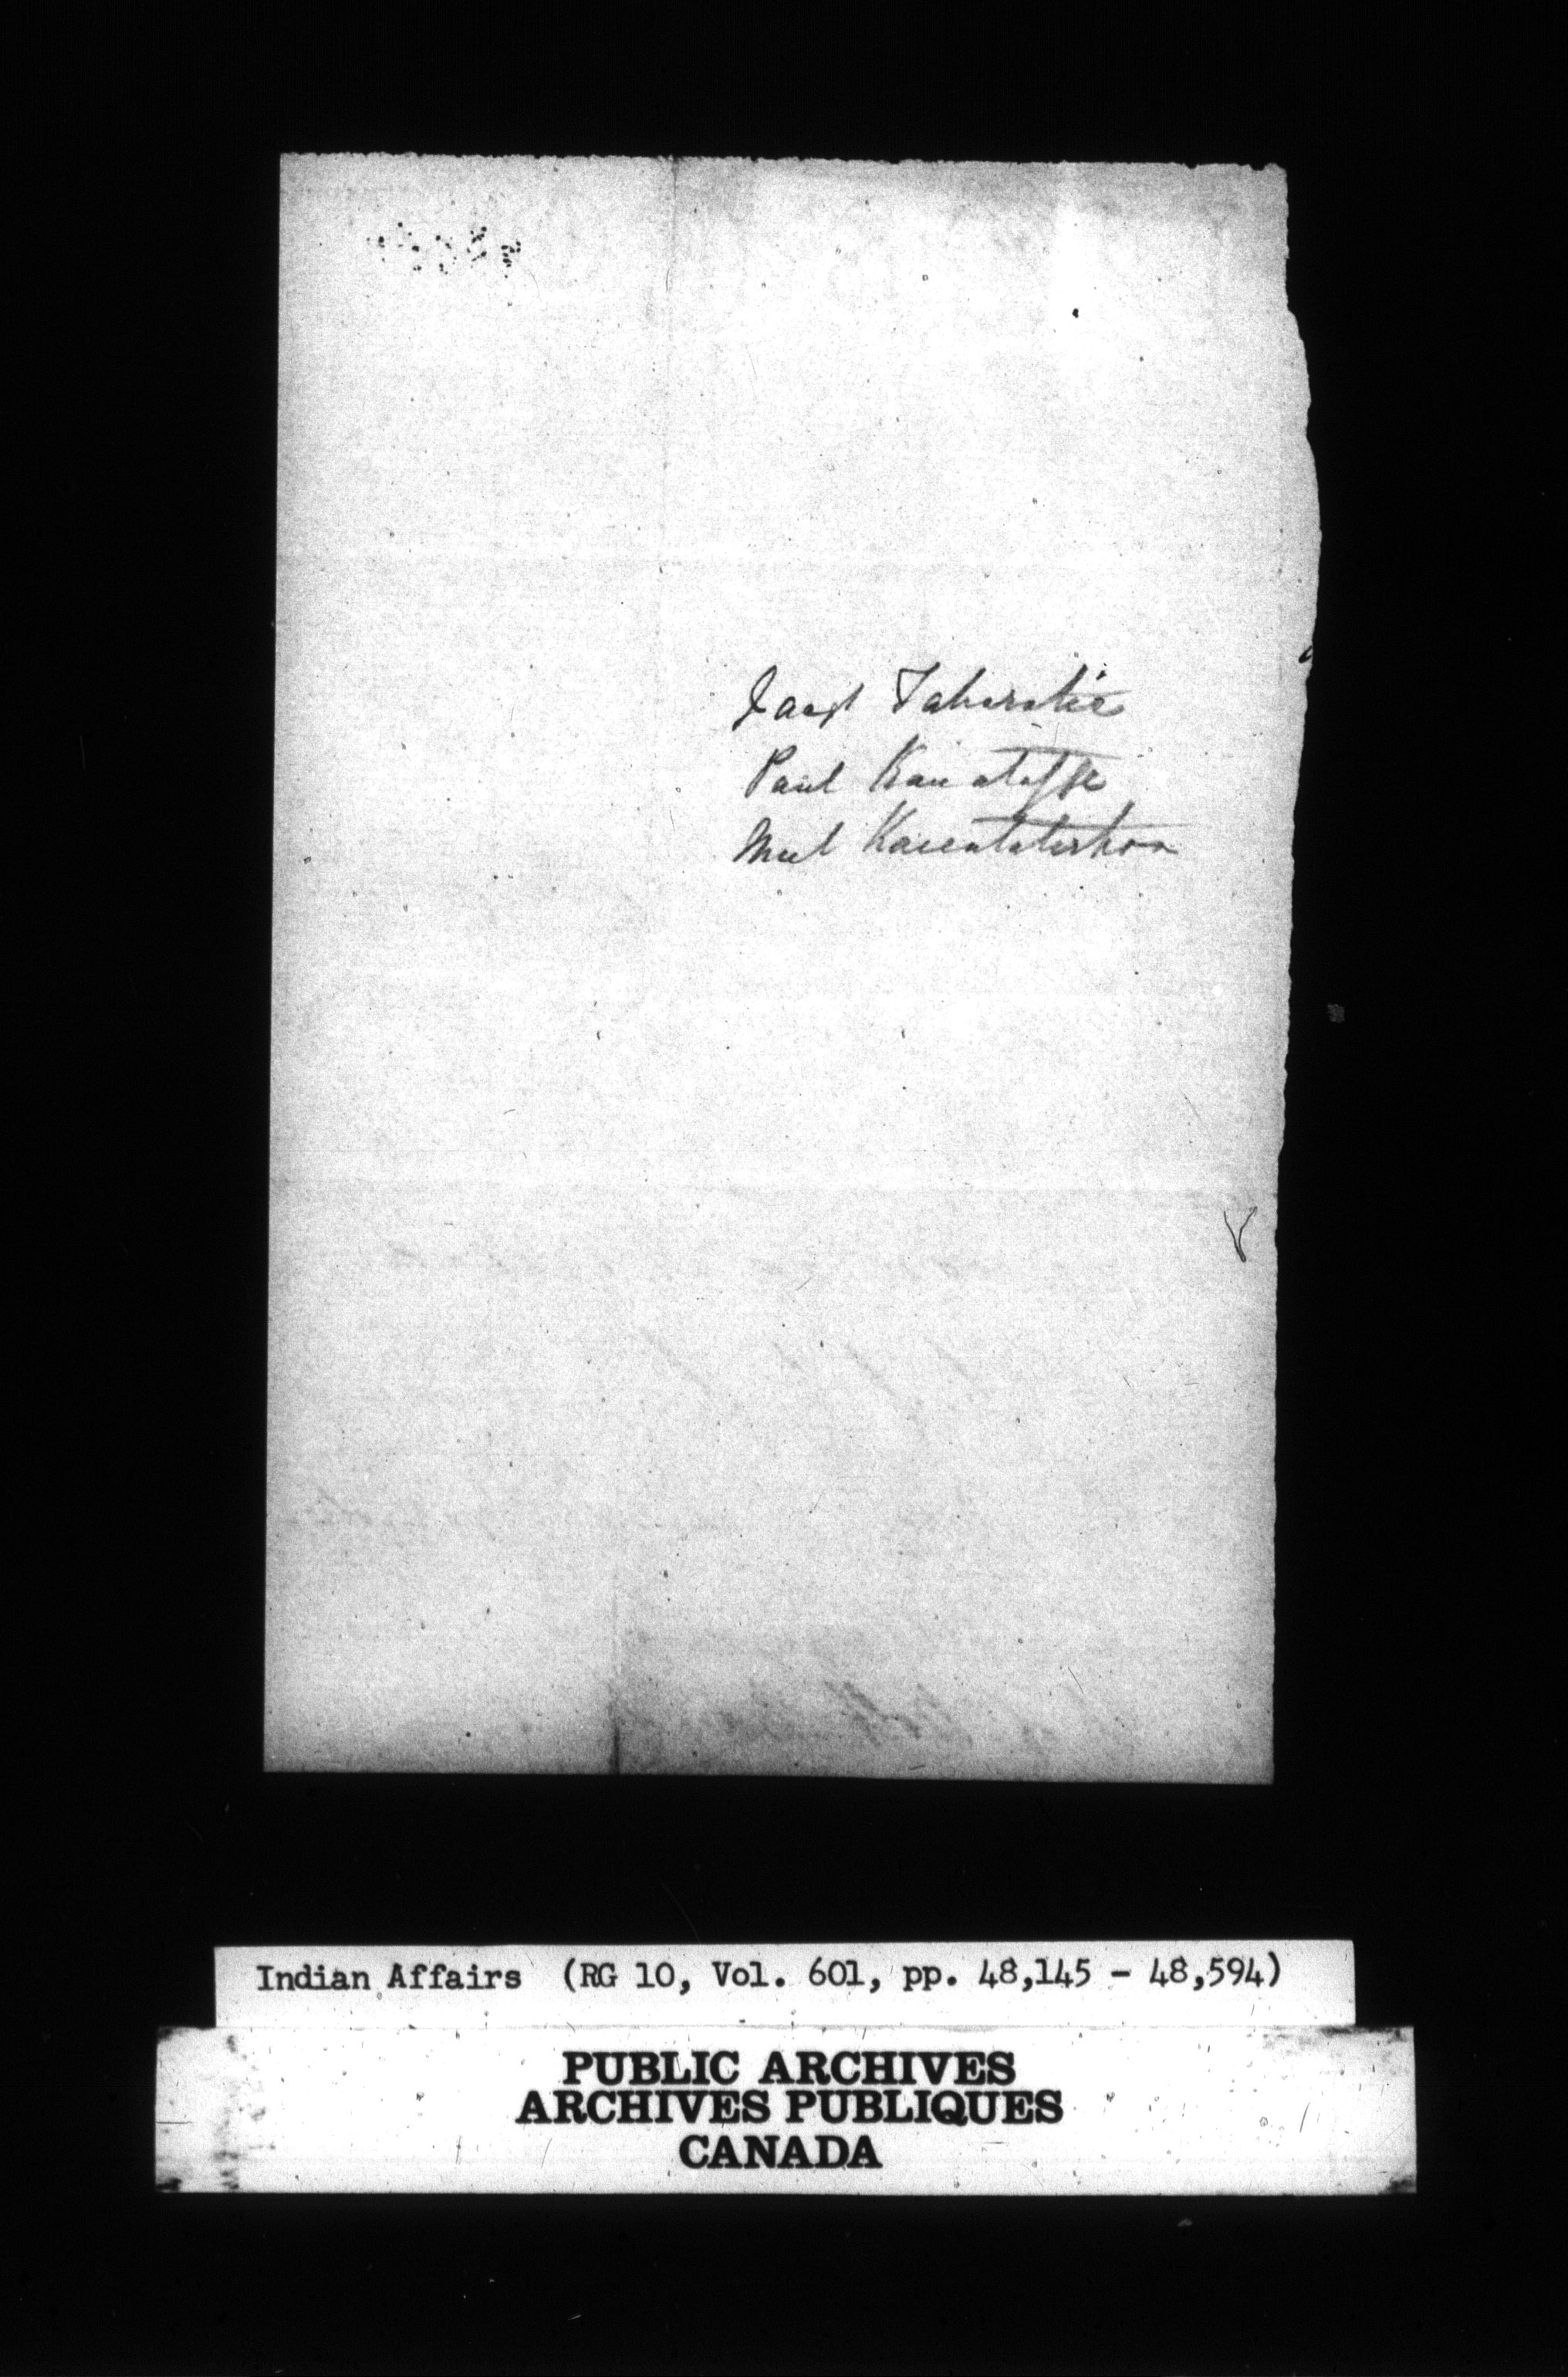 Jacq Taharatie
Paul Kanatasse
Mul Kaientatirhon
Indian Affairs (RG 10, Vol. 601, pp. 48,145 - 48,594)
PUBLIC ARCHIVES
ARCHIVES PUBLIQUES
CANADA